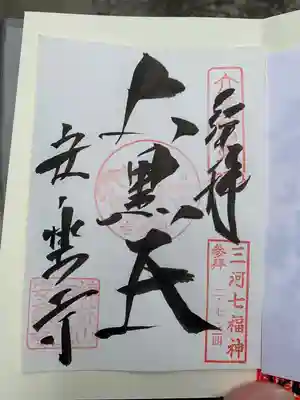 奉拝
三河七福神
参拝
大黒天
安楽寺